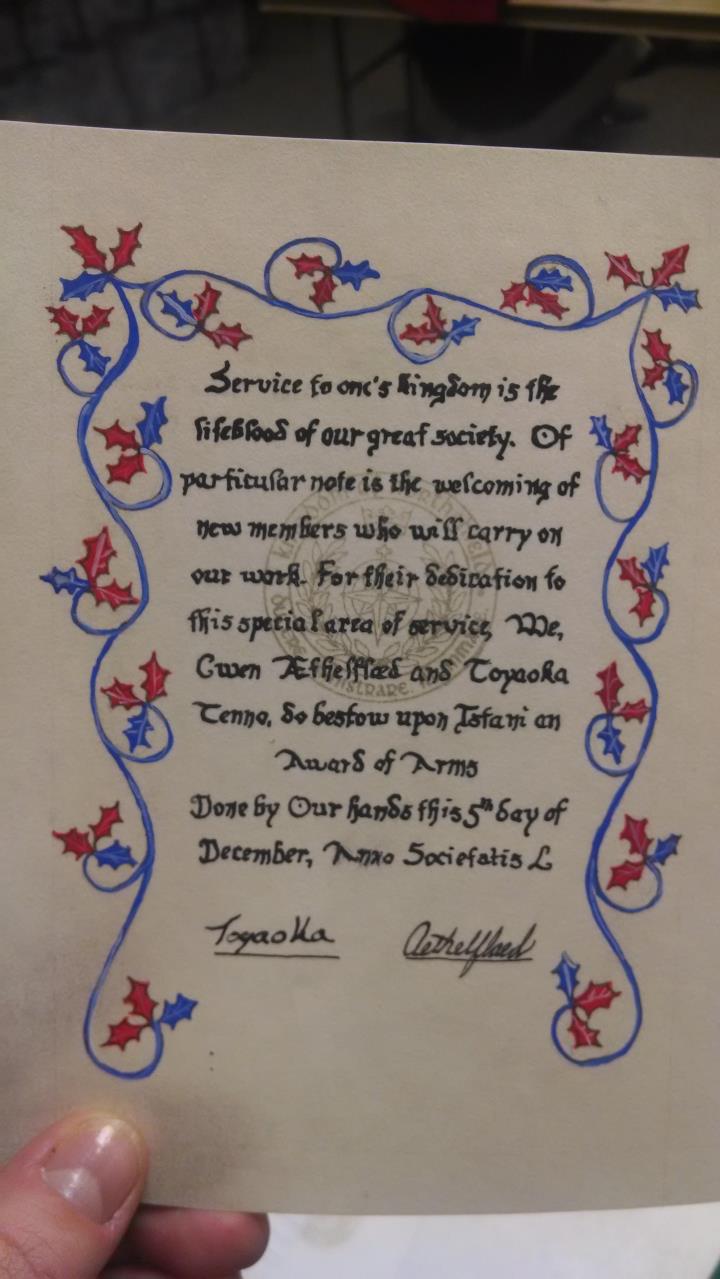 Service to one's kingdom is the
lifeblood of our great society. Of
particular note is the welcoming of
new members who will carry on
our work. For their dedication to
this special area of service, We,
Cwen Æthelflæd and Toyaoka
Tenno, do bestow upon Istani an
Award of Arms
Done by Our hands this 5th day of
December, Anno Societatis L
Toyaoka Aethelflaed